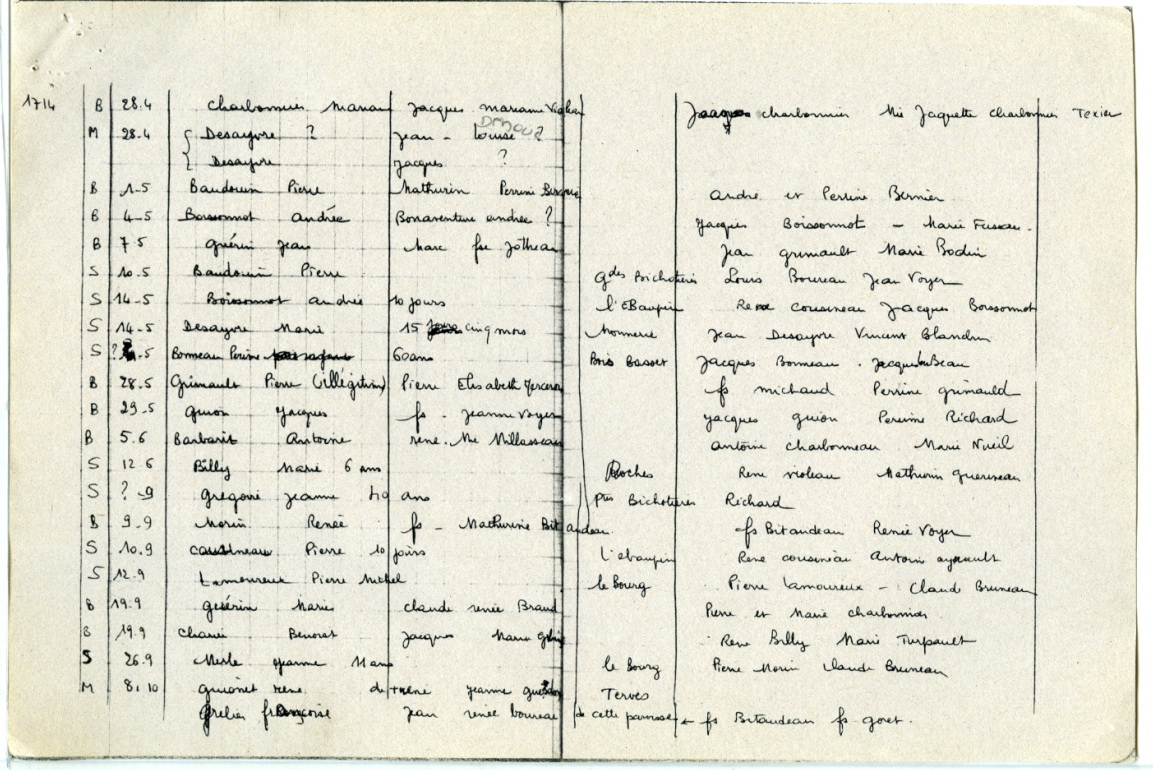 1714 B 28.4 Charbonnier Marian Jacques mariane Jacques charbonnier Mie Jaquette charbonnier Texier
M 28.4 { Desayvre ? Jean - Louise ?
{ Desayvre Jacques ?
B 1-5 Baudouin Pierre Mathurin Perrine andre et Perrine Bernier
B 4-5 Boissonnot andrée Bonaventure andrée ? Jacques Boissonnot - Marie
B 7-5 guérin Jean Marc fse Jotheau Jean grimault Marie Bodin
S 10.5 Baudouin Pierre gdes Bichoteries Louis Boureau Jean Voyer
S 14-5 Boissonnot andrée 10 jours l'EBaupin Rene cousineau Jacques Boissonnot
S 14-5 Desayvre Marie 15 cinq mois Monnerie Jean Desayvre Vincent Blandin
S ? .5 Bonneau Perine 60 ans Bois Basset Jacques Bonneau . Jacques
B 28.5 Grimault Pierre (illégitime) Pierre Elisabeth fs michaud Perrine grimauld
B 29-5 guion Jacques fs - Jeanne Voyer Jacques guion Perrine Richard
B 5.6 Barbarit Antoine rene . Mie Millasseau antoine charbonneau Marie Nueil
S 12 6 Billy Marie 6 ans Roches Rene violeau Mathurin
S ? -9 gregoire Jeanne 40 ans ptes Bichoteries Richard
B 9-9 Morin Renée fs - Mathurine Bitaudeau fs Bitaudeau Renée Voyer
S 10.9 cousineau Pierre 10 jours l'ebaupin Rene cousineau Antoine ayrault
S 12.9 Lamoureux Pierre Michel le Bourg Pierre Lamoureux - Claud Bruneau
B 19.9 Marie claude renée Braud Pierre et Marie charbonnier
B 19.9 Benoist Jacques Marie Rene Billy Marie Turpault
S 26.9 Merle Jeanne 11 ans le Bourg Pierre Morin Claude Bruneau
M 8.10 guionet rene de + rené Jeanne Terves
Grelier françoise Jean renée boureau de cette paroisse - fs Bitaudeau fs goret .